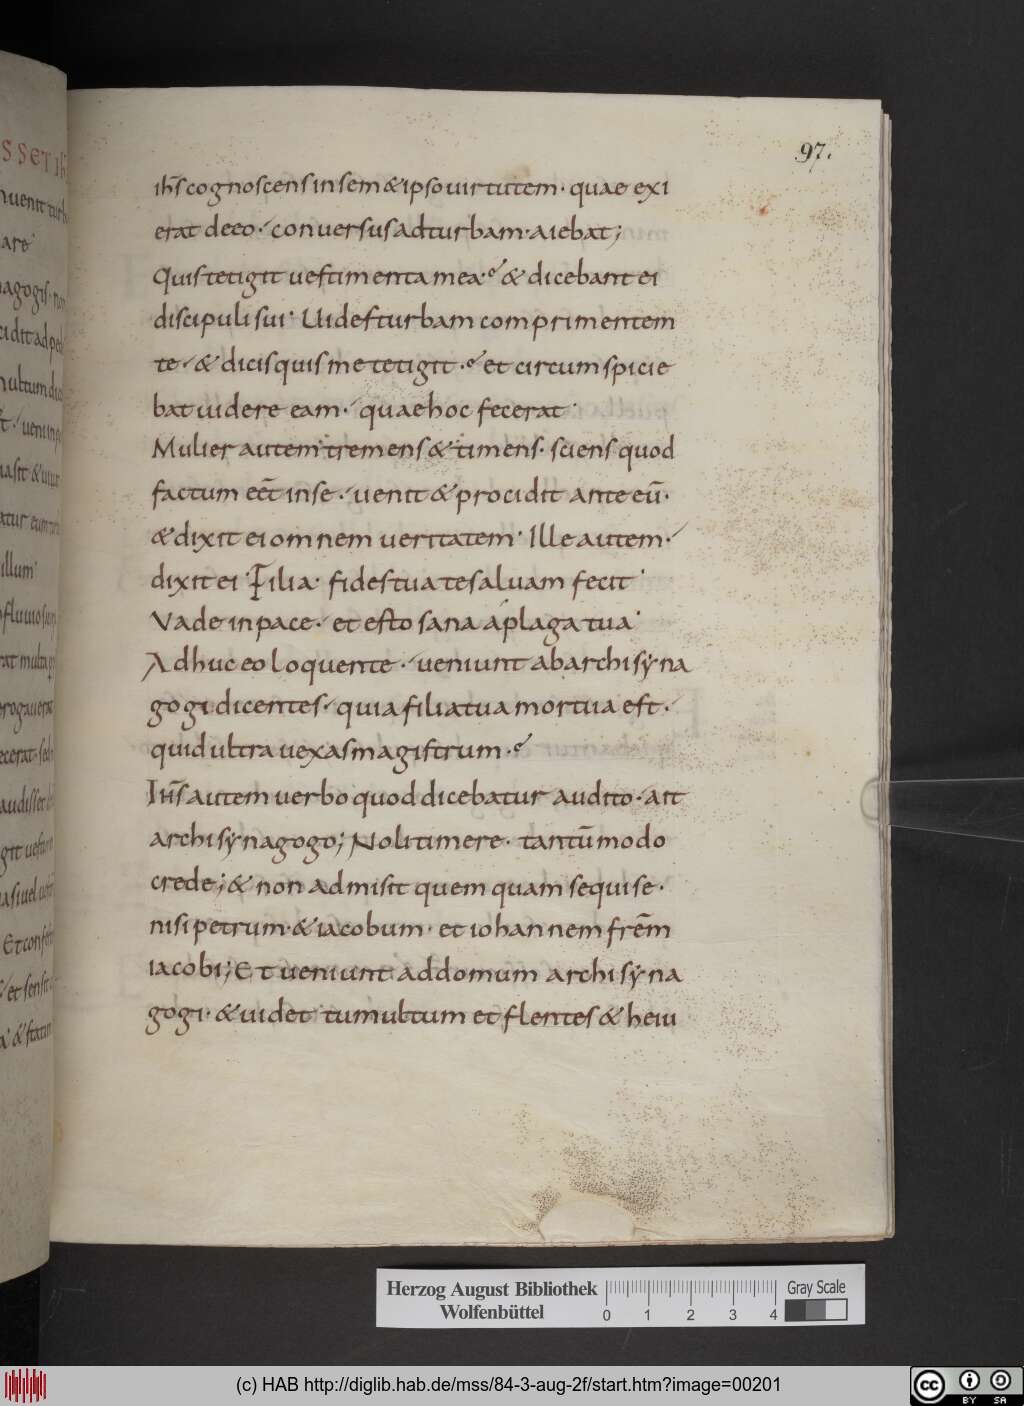 97.
ih̅s cognoscens in sem&ipso uirtutem· quae exi
erat deeo· conuersus ad turbam· aiebat;
Quis tetigit uestimenta mea? & dicebant ei
discipuli sui· Uides turbam comprimentem
te· & dicis quis me tetigit? et circumspicie
bat uidere eam· quae hoc fecerat·
Mulier autem tremens & timens· sciens quod
factum eēt inse· uenit & procidit ante eū·
& dixit ei omnem ueritatem· Ille autem·
dixit ei· Filia· fides tua te saluam fecit·
Vade in pace· et esto sana a plaga tua·
Adhuc eo loquente· ueniunt ab archisẏna
gogi dicentes· quia filia tua mortua est·
quid ultra uexas magistrum?
Ih̅s autem uerbo quod dicebatur audito· ait
archisẏnagogo; Noli timere· tantūmodo
crede; & non admisit quemquam sequi se·
nisi petrum· & iacobum· et iohannem frēm
iacobi; Et ueniunt ad domum archisẏna
gogi· & uidet tumultum et flentes & heiu
Herzog August Bibliothek
Wolfenbüttel
0 1 2 3 4
Gray Scale
(c) HAB http://diglib.hab.de/mss/84-3-aug-2f/start.htm?image=00201
cc BY SA